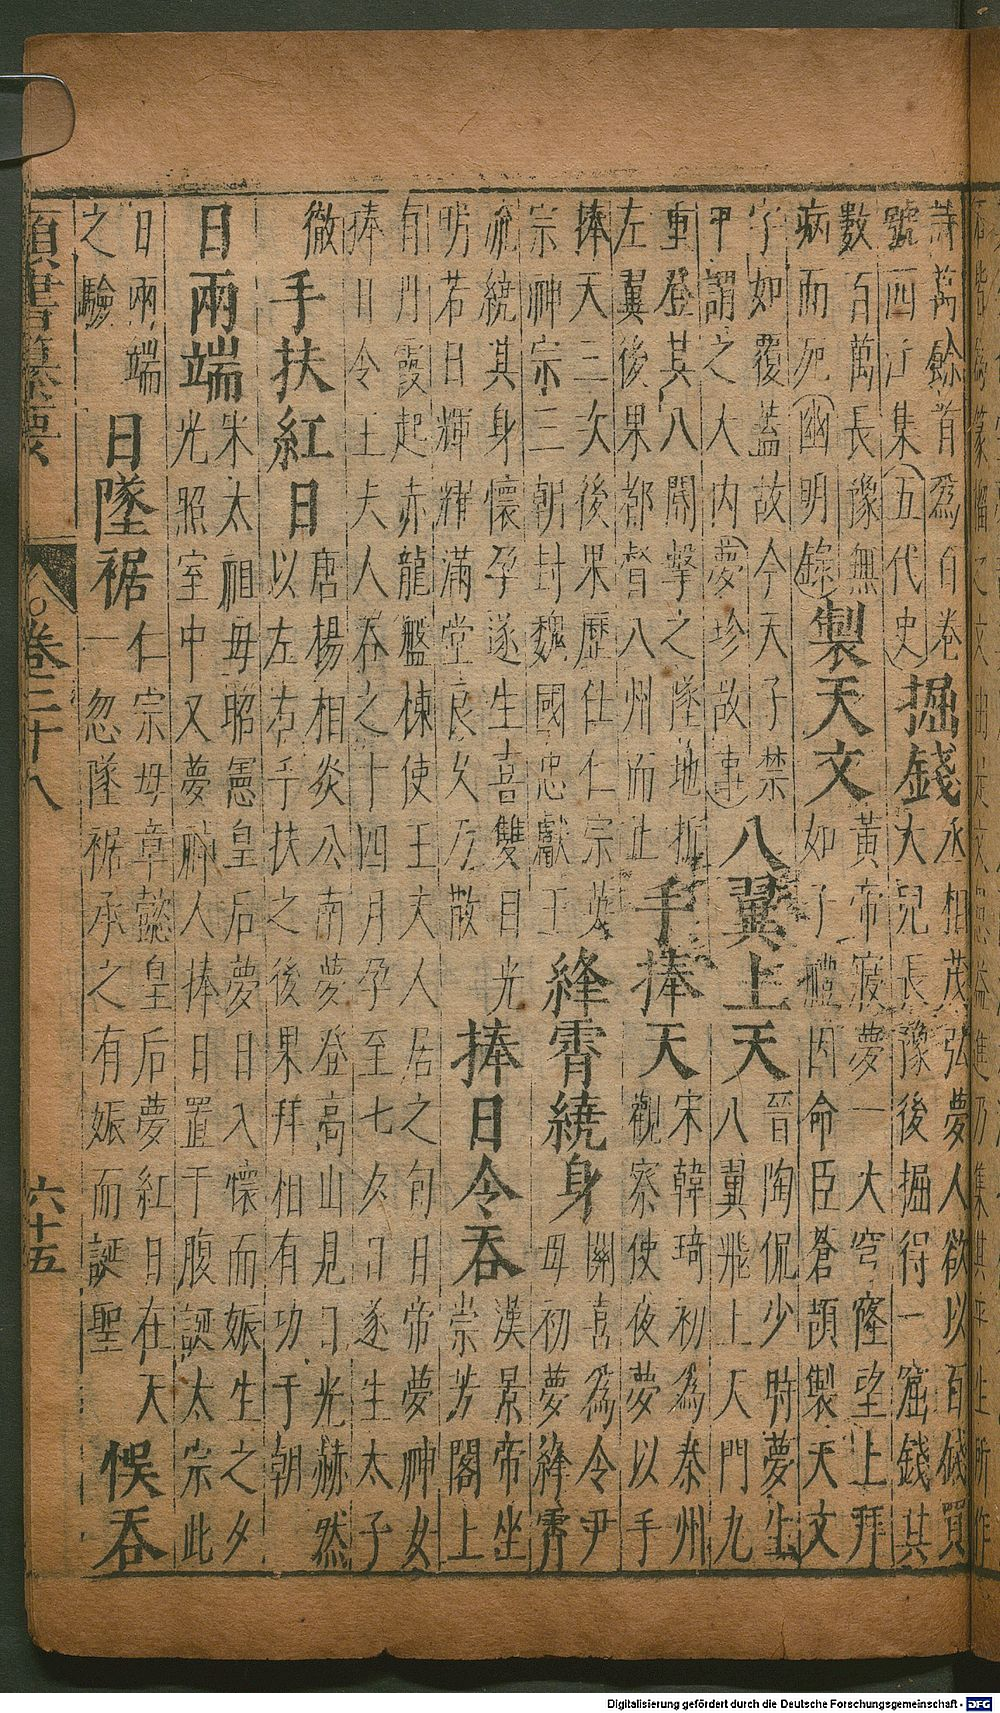 詩萬餘首爲百卷
號西江集(五代史)
掘錢
丞相茂弘夢人欲以百錢買
大兒長豫後掘得一窟錢其
數百萬長豫無
病而死(幽明錄)
製天文
黃帝寢夢一大穹窿望上拜
如子禮因命臣蒼頡製天文
字如覆蓋故今天子禁
甲謂之人内(夢珍故事)
八翼上天
晉陶侃少時夢生
八翼飛上天門九
重登其八閽擊之墜地折
左翼後果都督八州而止
手捧天
宋韓琦初為泰州
觀察使夜夢以手
捧天三次後果歷仕仁宗英
宗神宗三朝封魏國忠獻王
絳霄繞身
關喜為令尹
母初夢絳霄
流繞其身懷孕遂生喜雙目光
明若日輝耀滿堂良久乃散
捧日令吞
漢景帝坐
崇芳閣上
有丹霞起赤龍盤棟使王夫人居之旬日帝夢神女
捧日令王夫人吞之十四月孕至七夕日遂生太子
徹
手扶紅日
唐楊相炎公南夢登高山見日光赫然
以左右手扶之後果拜相有功于朝
日兩端
宋太祖母昭憲皇后夢日入懷而娠生之夕
光照室中又夢神人捧日置于腹誕太宗此
日兩端
之驗
日墜裾
仁宗母章懿皇后夢紅日在天
一忽墜裾承之有娠而誕聖
悞吞
類書纂要
卷二十八
六十五
Digitalisierung gefördert durch die Deutsche Forschungsgemeinschaft - DFG